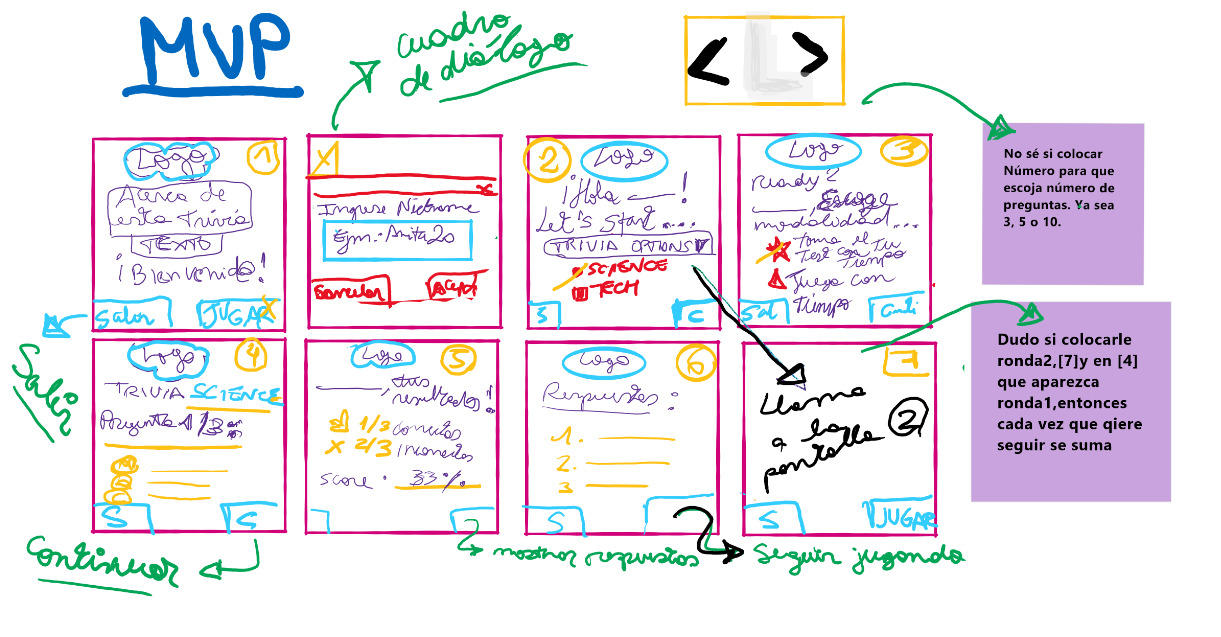 MVP
cuadro
de diálogo
< L >
Logo
1
Acerca de
esta trivia
TEXTO
¡Bienvenido!
Salir
JUGAR
x
Ingrese Nickname
Ejm.: Anita20
Cancelar
2
Logo
¡Hola ____!
Let's Start....
TRIVIA OPTIONS
SCIENCE
TECH
S
C
Logo
3
Ready?
____, Escoge
modalidad...
Toma el
Test con Tu
Tiempo
Juego con
Tiempo
Sal
No sé si colocar
Número para que
escoja número de
preguntas. Ya sea
3, 5 o 10.
Salir
Logo
4
TRIVIA SCIENCE
Pregunta 1/3
S
C
Logo
5
____, tus
resultados!
1/3 correctas
x 2/3 incorrectas
score: 33%
Logo
6
Respuestas:
1.
2.
3
S
7
Llama
a la
pantalla 2
S
JUGAR
Dudo si colocarle
ronda2,[7]y en [4]
que aparezca
ronda1,entonces
cada vez que qiere
seguir se suma
Continuar
mostrar respuestas
Seguir jugando